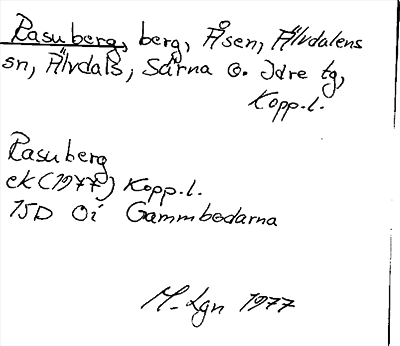 Rasuberg, berg, Åsen, Älvdalens
sn, Älvdals, Särna o. Idre tg,
Kopp.l.
Rasuberg
ek (1977) Kopp.l.
15D 0i Gammbodarna
M-Lgn 1977